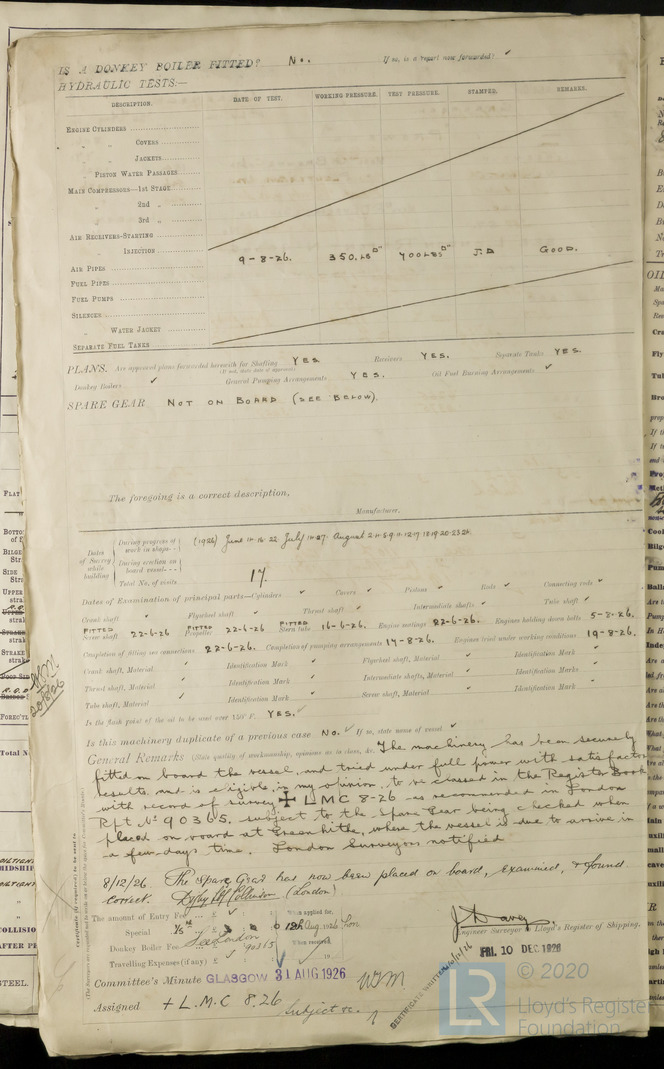 IS A DONKEY BOILER FITTED? No. If so, is a report now forwarded? ✓
HYDRAULIC TESTS:—
DESCRIPTION. DATE OF TEST. WORKING PRESSURE. TEST PRESSURE. STAMPED. REMARKS.
ENGINE CYLINDERS
" " COVERS
" " JACKETS
" PISTON WATER PASSAGES
MAIN COMPRESSORS—1st STAGE
" 2nd "
" 3rd "
AIR RECEIVERS—STARTING
" INJECTION 9-8-26. 350 LBS □" 700 LBS □" J.D GOOD.
AIR PIPES
FUEL PIPES
FUEL PUMPS
SILENCER
" WATER JACKET
SEPARATE FUEL TANKS
PLANS. Are approved plans forwarded herewith for Shafting YES Receivers YES. Separate Tanks YES.
(If not, state date of approval)
Donkey Boilers ✓ General Pumping Arrangements YES. Oil Fuel Burning Arrangements ✓
SPARE GEAR NOT ON BOARD (SEE BELOW).
The foregoing is a correct description,
Manufacturer.
Dates of Survey while building
During progress of work in shops-- (1926) June 11.16.22. July
During erection on board vessel---
Total No. of visits 17.
Dates of Examination of principal parts—Cylinders ✓ Covers ✓ Pistons ✓ Rods ✓ Connecting rods ✓
Crank shaft ✓ Flywheel shaft ✓ Thrust shaft ✓ Intermediate shafts ✓ Tube shaft ✓
FITTED Screw shaft 22-6-26 FITTED Propeller 22-6-26 FITTED Stern tube 16-6-26. Engine seatings 22-6-26. Engines holding down bolts 5-8-26.
Completion of fitting sea connections 22-6-26. Completion of pumping arrangements 17-8-26. Engines tried under working conditions 19-8-26.
Crank shaft, Material ✓ Identification Mark ✓ Flywheel shaft, Material ✓ Identification Mark ✓
Thrust shaft, Material ✓ Identification Mark ✓ Intermediate shafts, Material ✓ Identification Marks ✓
Tube shaft, Material ✓ Identification Mark ✓ Screw shaft, Material ✓ Identification Mark ✓
Is the flash point of the oil to be used over 150° F. YES. ✓
Is this machinery duplicate of a previous case No. ✓ If so, state name of vessel ✓
General Remarks (State quality of workmanship, opinions as to class, &c. The machinery has been securely
fitted on board the vessel, and tried under full power with satisfactory
results, and is eligible, in my opinion, to be classed in the Register Book
with record of survey ✠ LMC 8-26 as recommended in London
Rpt. No 90365, subject to the Spare Gear being checked when
placed on board at Greenhithe, where the vessel is due to arrive in
a few days time. London Surveyors notified
8/12/26. The Spare Gear has now been placed on board, examined, & found
correct. (London)
The amount of Entry Fee ... £ ✓ : : When applied for,
Special ... £ : : 12th Aug. 1926
Donkey Boiler Fee ... £ : : When received,
Travelling Expenses (if any) £ : : 19
See London 90365
Engineer Surveyor to Lloyd's Register of Shipping.
FRI. 10 DEC 1926
Committee's Minute GLASGOW 31 AUG 1926
Assigned + L.M.C 8.26
Subject &c.
CERTIFICATE WRITTEN
© 2020
LR
Lloyd's Register
Foundation